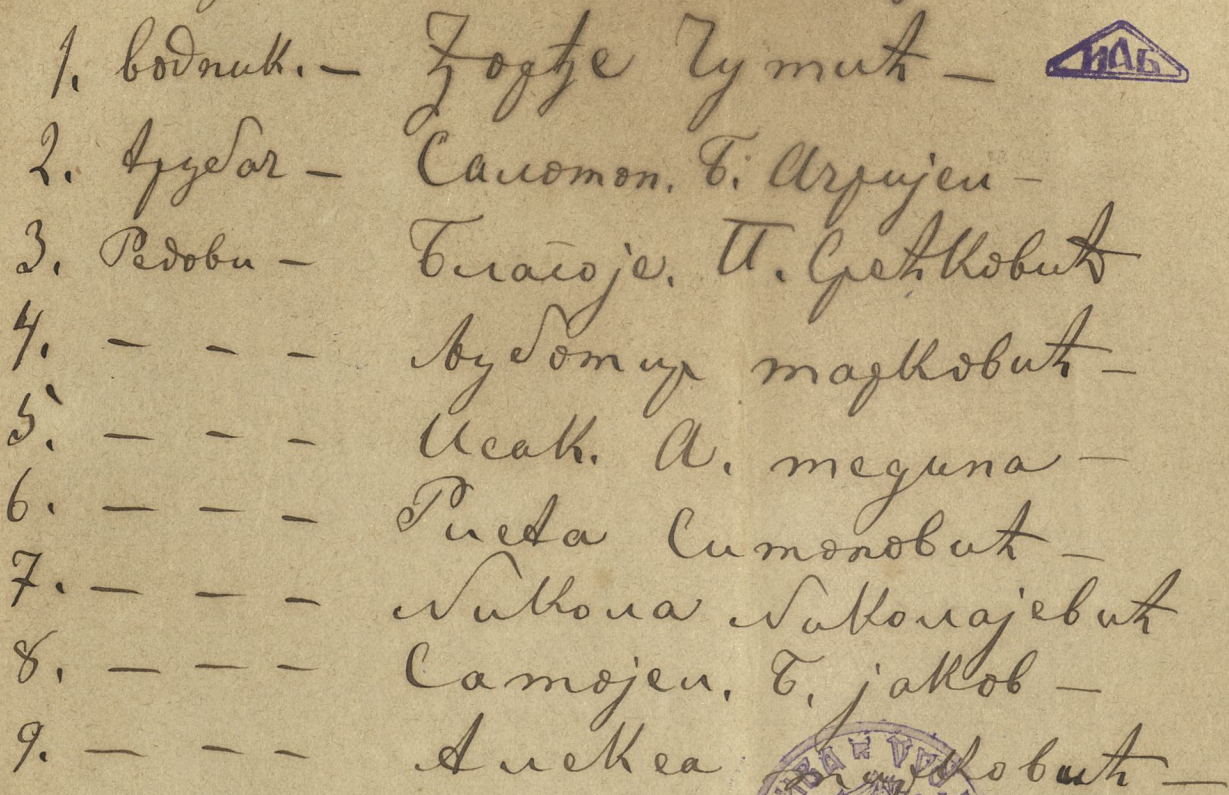 1. водник. — Ђорђе Чумић —
ИАБ
2. трубач — Саломон. Б. Азријел —
3. Редови — Благоје. П. Срећковић
4. — — — Љубомир Марковић —
5. — — — Исак. А. Медина —
6. — — — Риста Симоновић —
7. — — — Никола Николајевић
8. — — — Самојел. Б. Јаков —
9. — — — Алекса Марковић —